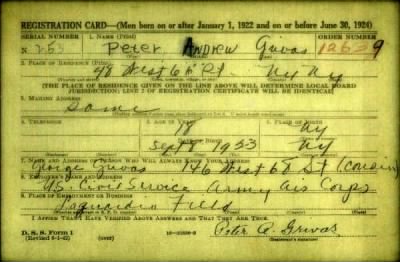 REGISTRATION CARD—(Men born on or after January 1, 1922 and on or before June 30, 1924)
SERIAL NUMBER 1. NAME (Print) ORDER NUMBER
N 253 Peter Andrew Grivas 12629
2. PLACE OF RESIDENCE (Print)
48 West 68 St. NY NY
(THE PLACE OF RESIDENCE GIVEN ON THE LINE ABOVE WILL DETERMINE LOCAL BOARD
JURISDICTION; LINE 2 OF REGISTRATION CERTIFICATE WILL BE IDENTICAL)
3. MAILING ADDRESS
Same
4. TELEPHONE 5. AGE IN YEARS 6. PLACE OF BIRTH
18 NY
DATE OF BIRTH
Sept 8 1923 NY
7. NAME AND ADDRESS OF PERSON WHO WILL ALWAYS KNOW YOUR ADDRESS
George Grivas 146 West 68 St (cousin)
8. EMPLOYER'S NAME AND ADDRESS
U.S. Civil Service Army Air Corps
Laguardia Field
I AFFIRM THAT I HAVE VERIFIED ABOVE ANSWERS AND THAT THEY ARE TRUE.
D. S. S. Form 1
Peter A. Grivas